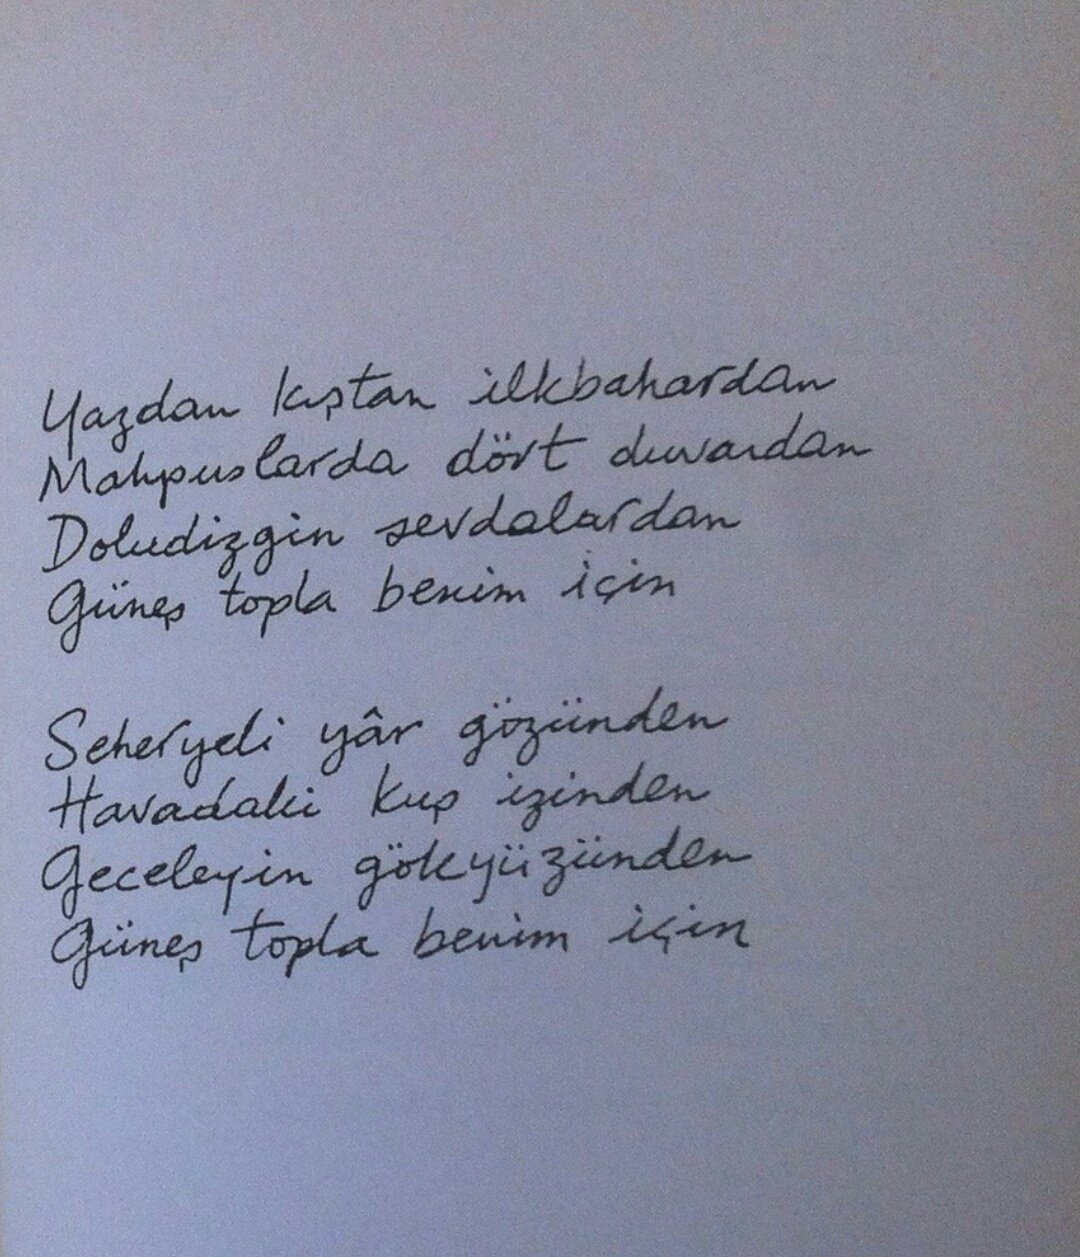 Yazdan kıştan ilkbahardan
Mahpuslarda dört duvardan
Doludizgin sevdalardan
Güneş topla benim için
Seheryeli yâr gözünden
Havadaki kuş izinden
Geceleyin gökyüzünden
Güneş topla benim için